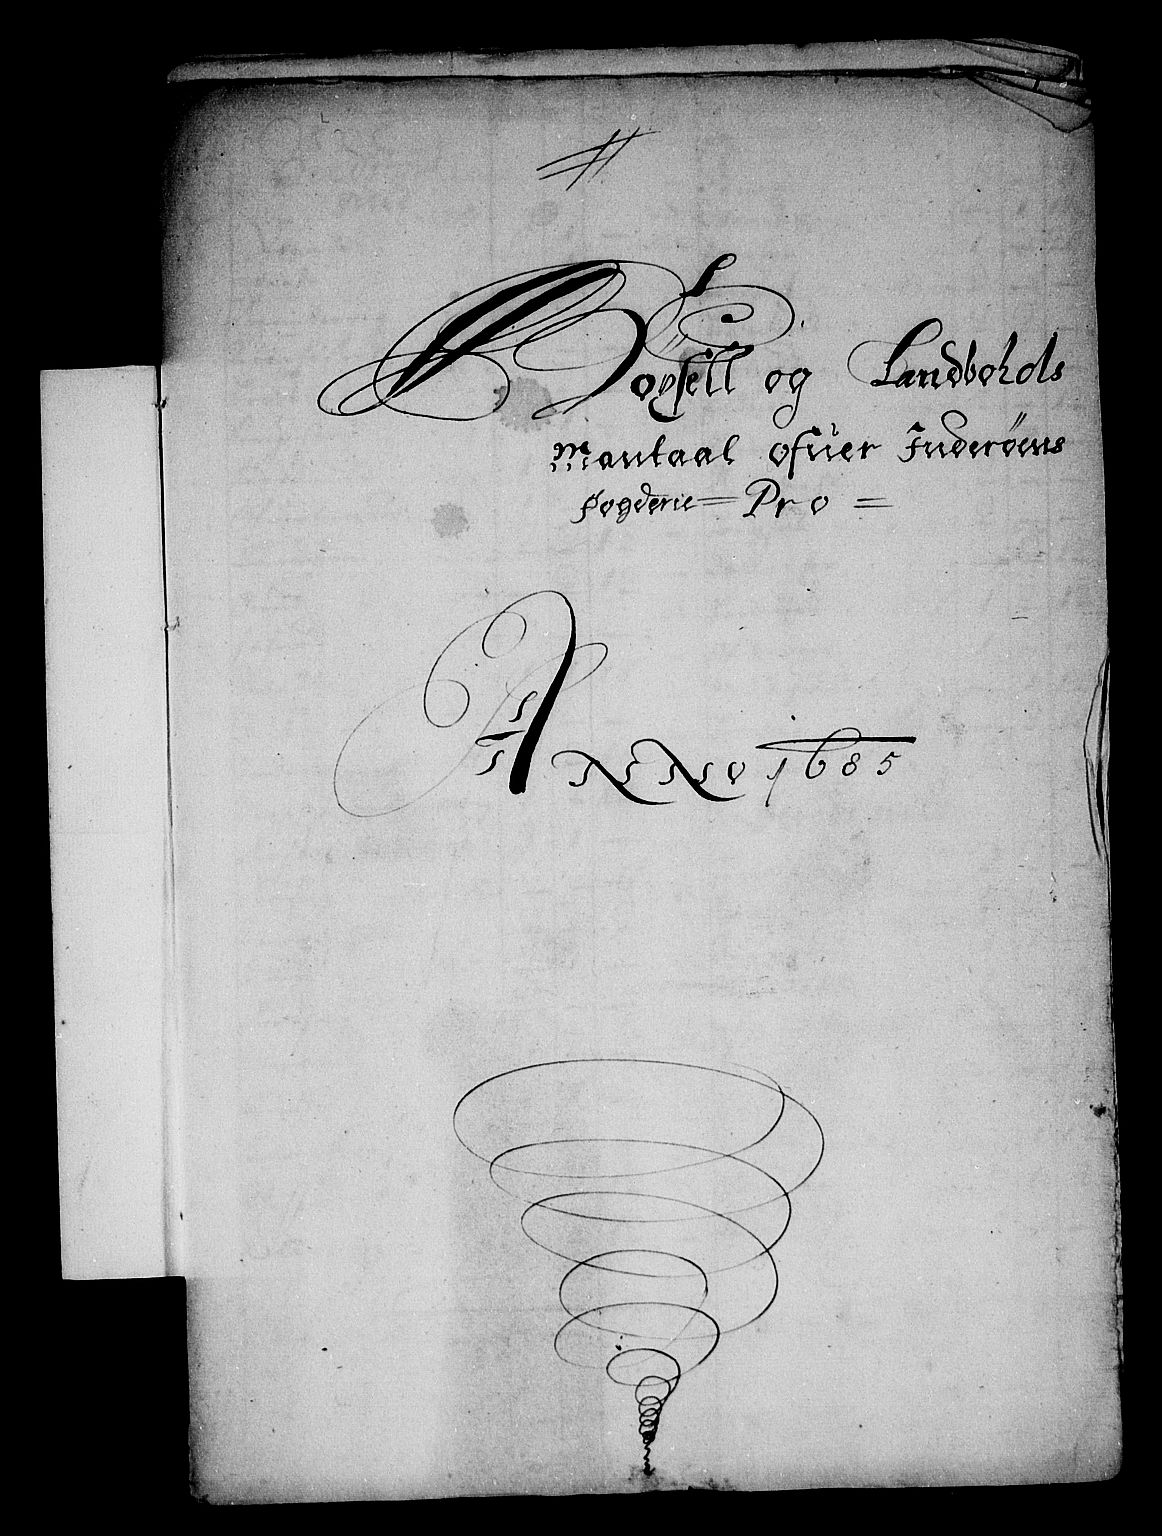 Böxsell og Landbohols
Mantaal ofuer Inderøens
fogderie = Pro =
Anno 1685